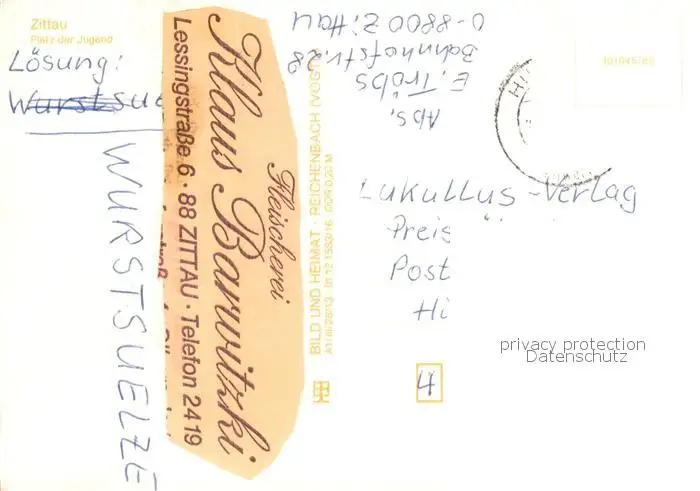 Zittau
Platz der Jugend
Lösung:
WURSTSUELZE
Fleischerei
Klaus Barwitzki
Lessingstraße 6 · 88 ZITTAU · Telefon 2419
BILD UND HEIMAT · REICHENBACH (VOGTL
Abs.
E. Tröbs
Bahnhofstr. 28
O-8800 Zittau
Lukullus-Verlag
Preis
Post
Hi
4
privacy protection
Datenschutz